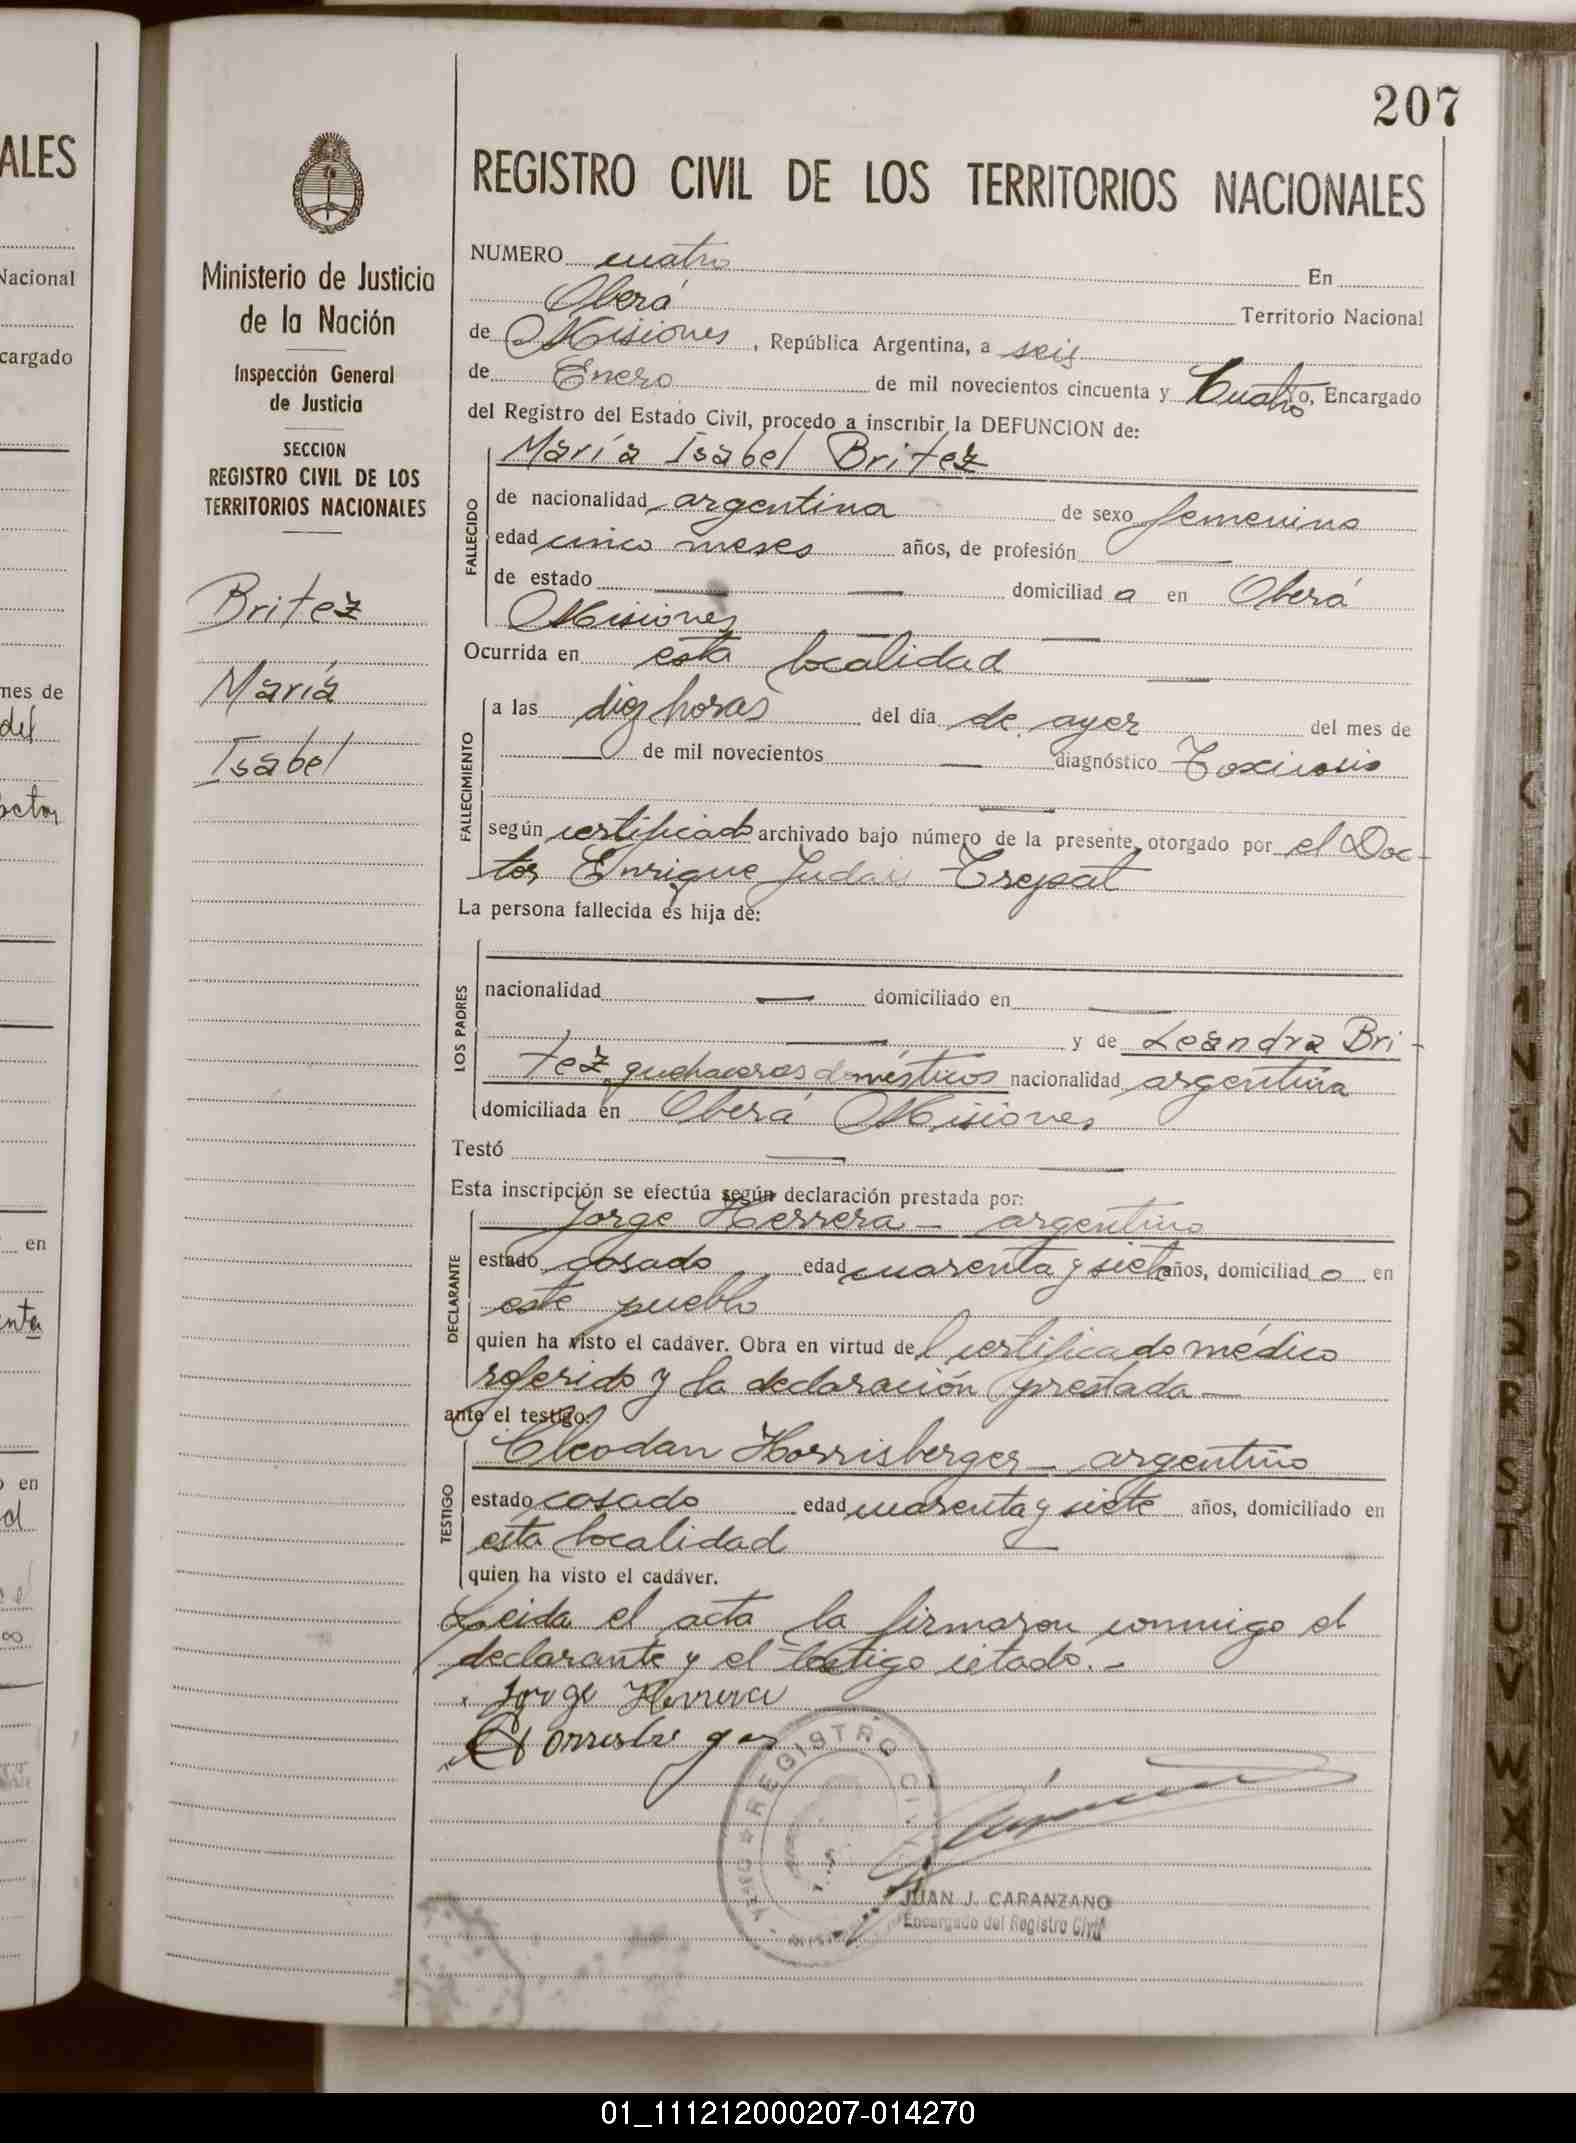 207
REGISTRO CIVIL DE LOS TERRITORIOS NACIONALES
Ministerio de Justicia
de la Nación
Inspección General
de Justicia
SECCION
REGISTRO CIVIL DE LOS
TERRITORIOS NACIONALES
Britez
María
Isabel
NUMERO cuatro En
Oberá Territorio Nacional
de Misiones, República Argentina, a seis
de Enero de mil novecientos cincuenta y Cuatro, Encargado
del Registro del Estado Civil, procedo a inscribir la DEFUNCION de:
FALLECIDO
María Isabel Britez
de nacionalidad argentina de sexo femenino
edad cinco meses años, de profesión —
de estado — — domiciliad a en Oberá
Misiones — —
Ocurrida en esta localidad —
FALLECIMIENTO
a las diez horas del día de ayer del mes de
— de mil novecientos — diagnóstico Toxicosis
—
según certificado archivado bajo número de la presente, otorgado por el Doc-
tor Enrique Trepat
La persona fallecida es hija de:
LOS PADRES
nacionalidad — domiciliado en —
— y de Leandra Bri-
tez quehaceres domésticos nacionalidad argentina
domiciliada en Oberá Misiones
Testó — —
Esta inscripción se efectúa según declaración prestada por:
DECLARANTE
Jorge Herrera - argentino
estado casado edad cuarenta y siete años, domiciliad o en
este pueblo
quien ha visto el cadáver. Obra en virtud del certificado médico
referido y la declaración prestada —
ante el testigo:
TESTIGO
Cleodan Horrisberger - argentino
estado casado edad cuarenta y siete años, domiciliado en
esta localidad —
quien ha visto el cadáver.
Leida el acta la firmaron conmigo el
declarante y el testigo citado.-
Jorge Herrera
REGISTRO CIVIL
JUAN J. CARANZANO
Encargado del Registro Civil
ALES
Nacional
cargado
mes de
del
en
o en
P Q R S T U V W X
01_111212000207-014270